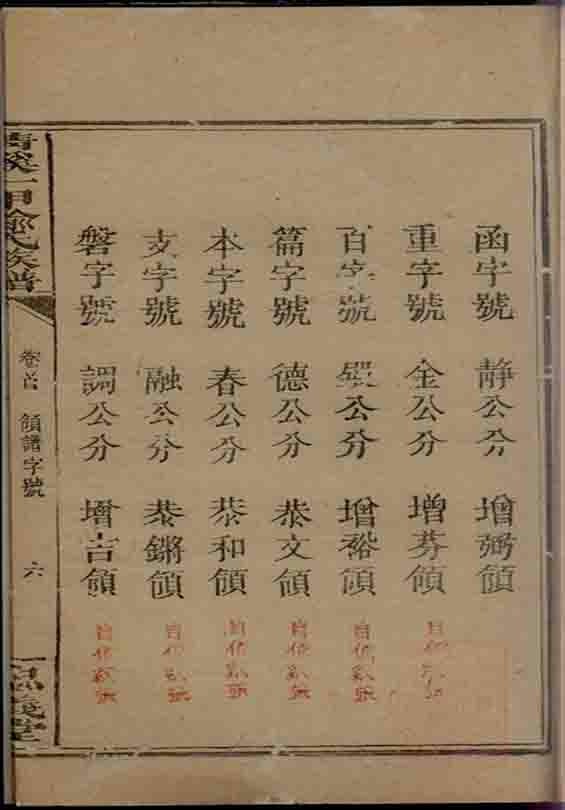 函字號 靜公分 增弼領
重字號 金公分 增芬領
百字號 公分 增領
篇字號 德公分 恭文領
本字號 春公分 恭和領
支字號 融公分 恭鏘領
磐字號 調公分 增吉領
清溪一甲余氏族譜
卷首 領譜字號 六